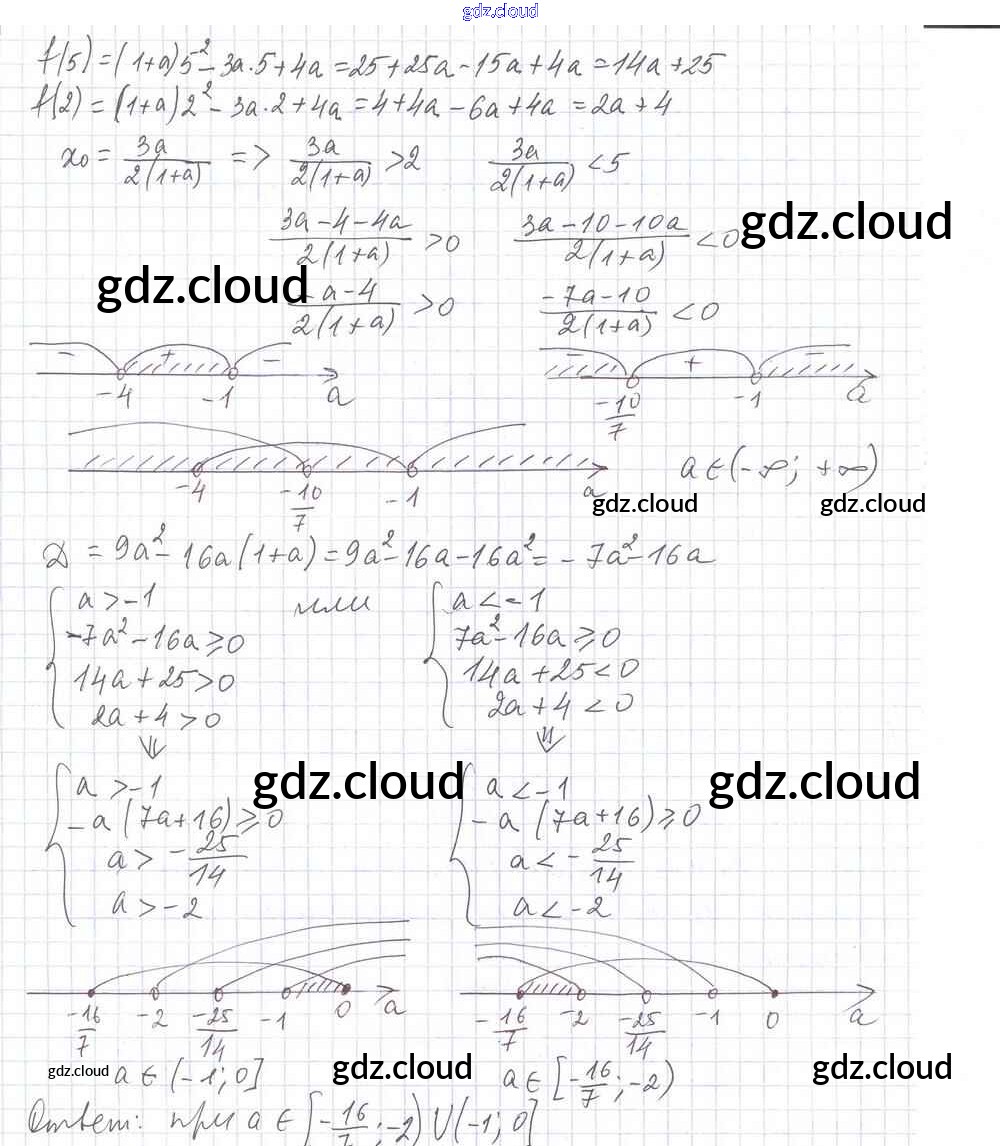 gdz.cloud
f(5) = (1+a)5² - 3a·5 + 4a = 25 + 25a - 15a + 4a = 14a + 25
f(2) = (1+a)2² - 3a·2 + 4a = 4 + 4a - 6a + 4a = 2a + 4
x₀ = 3a/2(1+a) => 3a/2(1+a) > 2    3a/2(1+a) < 5
(3a-4-4a)/2(1+a) > 0    (3a-10-10a)/2(1+a) < 0 gdz.cloud
gdz.cloud (-a-4)/2(1+a) > 0    (-7a-10)/2(1+a) < 0
- + -    - + -
-4 -1 a    -10/7 -1 a
-4 -10/7 -1 a    a ∈ (-∞; +∞)
gdz.cloud gdz.cloud
D = 9a² - 16a(1+a) = 9a² - 16a - 16a² = -7a² - 16a
{ a > -1    или    { a < -1
-7a² - 16a ⩾ 0    7a² - 16a ⩾ 0
14a + 25 > 0    14a + 25 < 0
2a + 4 > 0    2a + 4 < 0
⇓    ⇓
{ a > -1 gdz.cloud    { a < -1 gdz.cloud
-a(7a+16) ⩾ 0    -a(7a+16) ⩾ 0
a > -25/14    a < -25/14
a > -2    a < -2
-16/7 -2 -25/14 -1 0 a    -16/7 -2 -25/14 -1 0 a
gdz.cloud a ∈ (-1; 0] gdz.cloud a ∈ [-16/7; -2) gdz.cloud
Ответ: при a ∈ [-16/7; -2) ∪ (-1; 0]